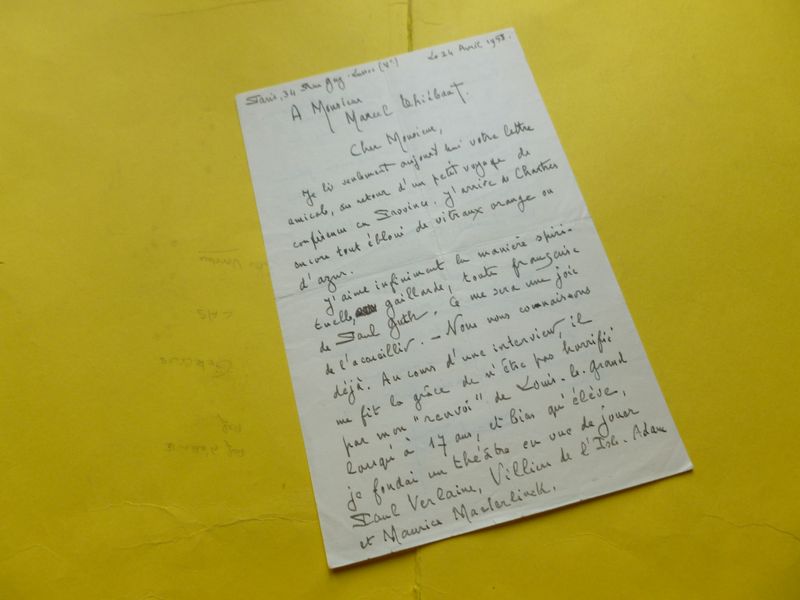 Paris, 34 Rue Gay-Lussac (Ve) Le 24 Avril 1953.
A Monsieur
Marcel Thiébaut.
Cher Monsieur,
Je lis seulement aujourd'hui votre lettre
amicale, au retour d'un petit voyage de
conférence en Province. J'arrive de Chartres
encore tout ébloui de vitraux orange ou
d'azur.
J'aime infiniment la manière spiri-
tuelle, gaillarde, toute française
de Paul Guth. Ce me sera une joie
de l'accueillir. – Nous nous connaissons
déjà. Au cours d'une interview, il
me fit la grâce de n'être pas horrifié
par mon "renvoi" de Louis-le-Grand
lorsqu'à 17 ans, et bien qu'élève,
je fondai un théâtre en vue de jouer
Paul Verlaine, Villiers de l'Isle-Adam
et Maurice Maeterlinck.